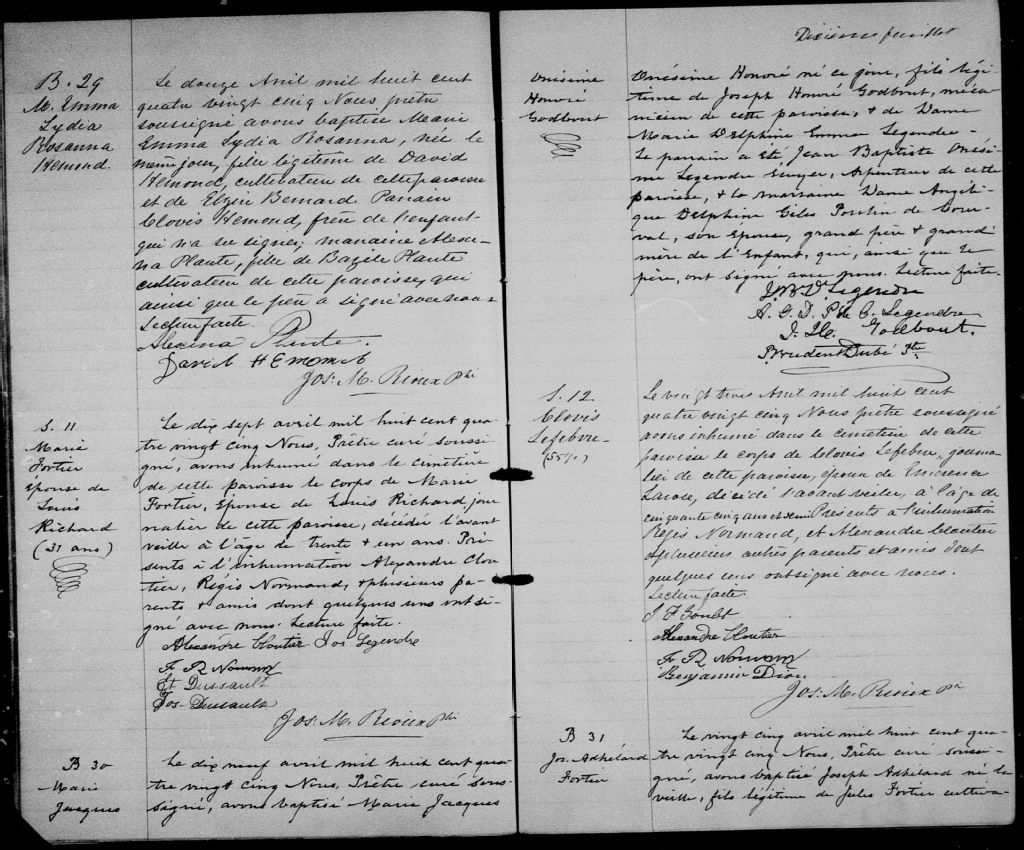 B. 29
M. Emma
Lydia
Rosanna
Hemond.
Le douze Avril mil huit cent
quatre vingt cinq Nous prêtre
soussigné avons baptisé Marie
Emma Lydia Rosanna, née le
même jour, fille légitime de David
Hemond, cultivateur de cette paroisse
et de Elzire Bernard. Parrain
Clovis Hemond, frère de l'enfant
qui n'a su signer, marraine Alexi-
na Plante, fille de Bazile Plante
cultivateur de cette paroisse, qui
ainsi que le père a signé avec nous
Lecture faite.
Alexina Plante.
David Hemond
Jos. M. Rioux Ptre
S. 11
Marie
Fortier
épouse de
Louis
Richard
(31 ans)
Le dix sept avril mil huit cent qua-
tre vingt cinq Nous, Prêtre curé soussi-
gné, avons inhumé dans le cimetière
de cette paroisse le corps de Marie
Fortier, Epouse de Louis Richard, jour-
nalier de cette paroisse, décédée l'avant
veille à l'âge de trente & un ans. Pré-
sents à l'inhumation Alexandre Clou-
tier, Régis Normand, & plusieurs pa-
rents & amis dont quelques uns ont si-
gné avec nous. Lecture faite.
Alexandre Cloutier Jos Legendre
F R Normand
Et Dussault
Jos Dussault
Jos. M. Rioux Ptre
B 30
Marie
Jacques
Le dix neuf avril mil huit cent qua-
tre vingt cinq Nous, Prêtre curé sous-
signé, avons baptisé Marie Jacques
Dixième feuillet
Onésime
Honoré
Godbout
Onésime Honoré né ce jour, fils légi-
time de Joseph Honoré Godbout, méca-
nicien de cette paroisse, & de Dame
Marie Delphine Emma Legendre.
Le parrain a été, Jean Baptiste Onési-
me Legendre Ecuyer, Arpenteur de cette
paroisse, & la marraine Dame Angéli-
que Delphine Giles Poulin de Cour-
val, son Epouse, grand père & grand
mère de l'Enfant, qui, ainsi que le
père, ont signé avec nous. Lecture faite.
J. B. O. Legendre
A. G. D. P de C. Legendre
J. H. Godbout.
Prudent Dubé Ptre
S. 12
Clovis
Lefebvre
(55½)
Le vingt trois Avril mil huit cent
quatre vingt cinq Nous prêtre soussigné
avons inhumé dans le cimetière de cette
paroisse le corps de Clovis Lefebvre, journa-
lier de cette paroisse, époux de Emérence
Larose, décédé l'avant veille, à l'âge de
cinquante cinq ans et demi Présents à l'inhumation
Régis Normand, et Alexandre Cloutier
& plusieurs autres parents et amis dont
quelques uns ont signé avec nous.
Lecture faite
Alexandre Cloutier
F R Normand
Benjamin Dion
Jos. M. Rioux Ptre
B 31
Jos. Adhélard
Fortier
Le vingt cinq avril mil huit cent qua-
tre vingt cinq Nous, Prêtre curé soussi-
gné, avons baptisé Joseph Adhélard né la
veille, fils légitime de Jules Fortier cultiva-